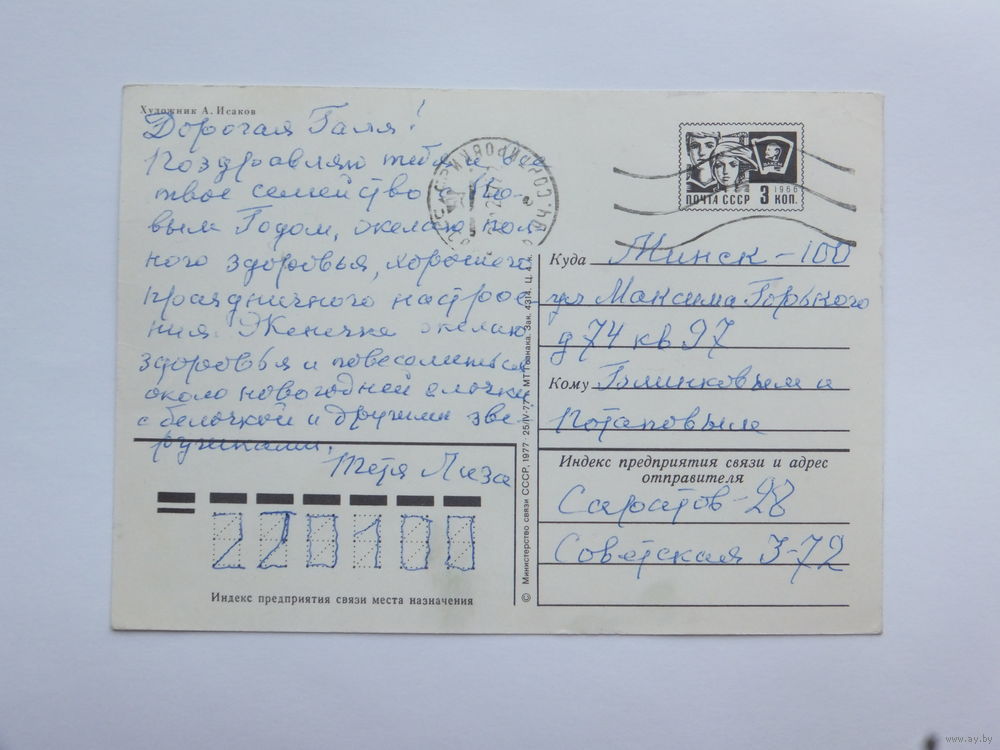 Художник А. Исаков
Дорогая Галя!
Поздравляю тебя и все
твое семейство с Но-
вым Годом, желаю пол-
ного здоровья, хорошего
праздничного настрое-
ния. Женечке желаю
здоровья и повеселиться
около новогодней елочки
с белочкой и другими зве-
рушками.
Тётя Лиза
ПОЧТА СССР 3 КОП.
1966
Куда Минск-100
ул Максима Горького
д 74 кв 97
Кому Голинковым и
Потаповым
Индекс предприятия связи и адрес
отправителя
Саратов-28
Советская 3-72
220100
Индекс предприятия связи места назначения
© Министерство связи СССР, 1977 · 25/IV-77 г. МТ Гознака. Зак. 4314. Ц. 4 к.
www.ay.by